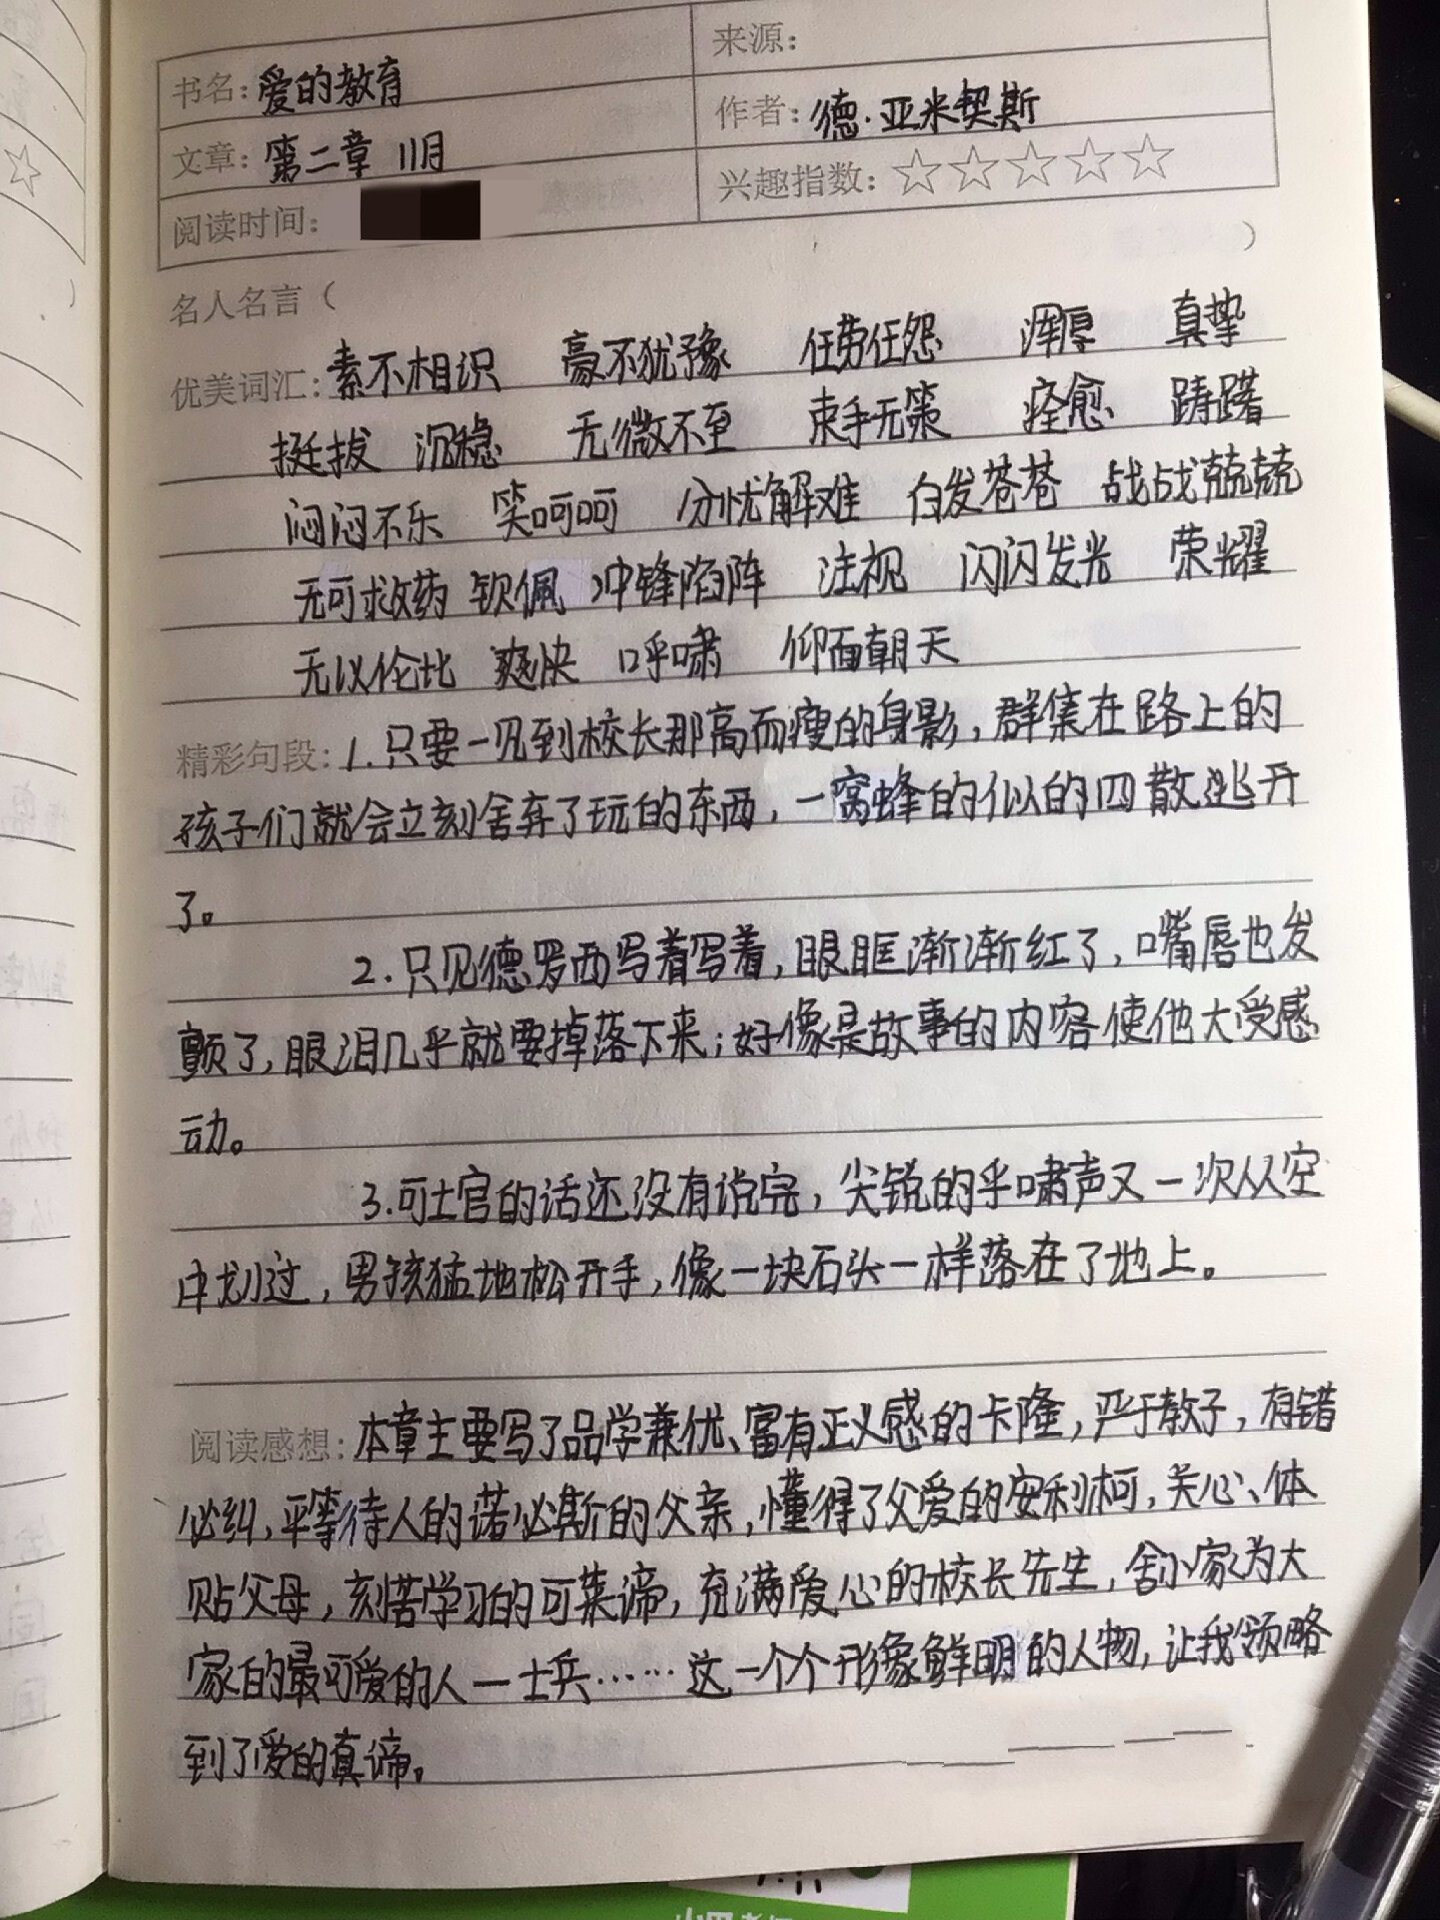 书名：爱的教育
来源：
作者：德·亚米契斯
文章：第二章 11月
兴趣指数：☆☆☆☆☆
阅读时间：
名人名言（ ）
优美词汇：素不相识 毫不犹豫 任劳任怨 浑厚 真挚
挺拔 沉稳 无微不至 束手无策 痊愈 踌躇
闷闷不乐 笑呵呵 分忧解难 白发苍苍 战战兢兢
无可救药 钦佩 冲锋陷阵 注视 闪闪发光 荣耀
无以伦比 爽快 呼啸 仰面朝天
精彩句段：1.只要一见到校长那高而瘦的身影，群集在路上的
孩子们就会立刻舍弃了玩的东西，一窝蜂的似的四散逃开
了。
2.只见德罗西写着写着，眼眶渐渐红了，嘴唇也发
颤了，眼泪几乎就要掉落下来；好像是故事的内容使他大受感
动。
3.可士官的话还没有说完，尖锐的乎啸声又一次从空
中划过，男孩猛地松开手，像一块石头一样落在了地上。
阅读感想：本章主要写了品学兼优、富有正义感的卡隆，严于教子，有错
必纠，平等待人的诺必斯的父亲，懂得了父爱的安利柯，关心、体
贴父母，刻苦学习的可莱谛，充满爱心的校长先生，舍小家为大
家的最可爱的人—士兵……这一个个形象鲜明的人物，让我领略
到了爱的真谛。